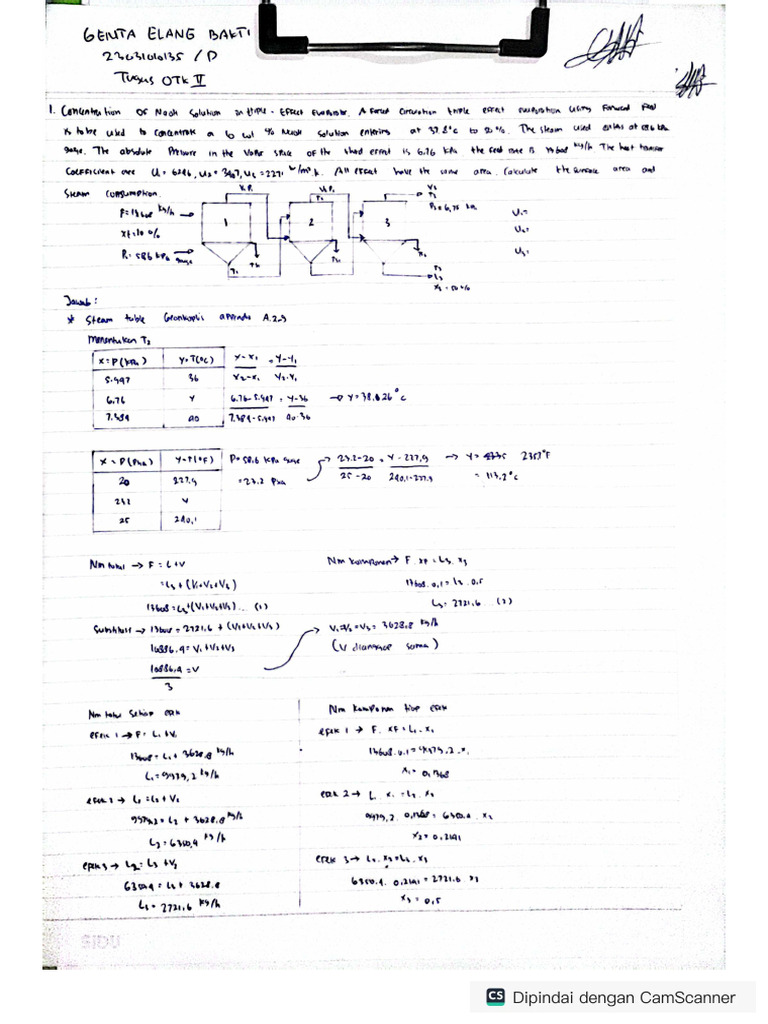 GENTA ELANG BAKTI
23031010135 / D
TUGAS OTK II
1. Concentration OF NaOH Solution in triple - Effect Evaporator. A Forced Circulation triple effect evaporation using Forward Feed
is to be used to concentrate a 10 wt % NaOH solution entering at 37.8°C to 50%. The steam used enters at 58.6 kPa
gauge. The absolute Pressure in the Vapor space of the third effect is 6.76 kPa the feed rate is 13608 kg/h The heat transfer
Coefficient are U1= 6246, U2= 3407, U3= 2271 W/m².K. All effect have the same area. Calculate the surface area and
Steam consumption.
F=13608 kg/h
XF=10 %
P1=58.6 kPa gauge
1
2
3
U1=
U2=
U3=
X3 = 50%
Jawab :
* Steam table Geankoplis appendix A.2-9
Menentukan T3
X=P(kPa) Y=T(°C) X-X1 = Y-Y1
X2-X1 Y2-Y1
5.947 36
6.76 Y 6.76-5.947 = Y-36 → Y=38.826°C
7.384 40 7.384-5.947 40-36
X = P(Psia) Y=T(°F) P=58.6 kPa gauge 23.2-20 = Y-227.9 → Y= 235.7°F
20 227.9 =23.2 Psia 25-20 240.1-227.9 = 113.2°C
23.2 Y
25 240.1
Nm total → F = L+V
=L3+(V1+V2+V3)
13608=L3+(V1+V2+V3)... (1)
Nm Komponen → F. XF = L3. X3
13608. 0,1 = L3. 0.5
L3= 2721.6 ... (2)
Substitusi → 13608=2721.6 + (V1+V2+V3)
10886.4 = V1+V2+V3
10886.4 = V
3
→ V1=V2=V3= 3628.8 kg/h
(V dianggap sama)
Nm total setiap efek
efek 1 → F= L1+V1
13608= L1+ 3628.8 kg/h
L1= 9979,2 kg/h
efek 2 → L1=L2+V2
9979.2= L2 + 3628.8 kg/h
L2= 6350,4 kg/h
efek 3 → L2= L3 +V3
6350.4 = L3+ 3628.8
L3= 2721.6 kg/h
Nm Komponen tiap efek
efek 1 → F. XF= L1. X1
13608.0.1= 9979,2 . X1
X1= 0,1368
efek 2 → L1. X1 = L2. X2
9979,2. 0,1368= 6350.4 . X2
X2= 0,2141
efek 3 → L2. X2= L3. X3
6350.4. 0,2141 = 2721.6 X3
X3= 0,5
SIDU
CS Dipindai dengan CamScanner